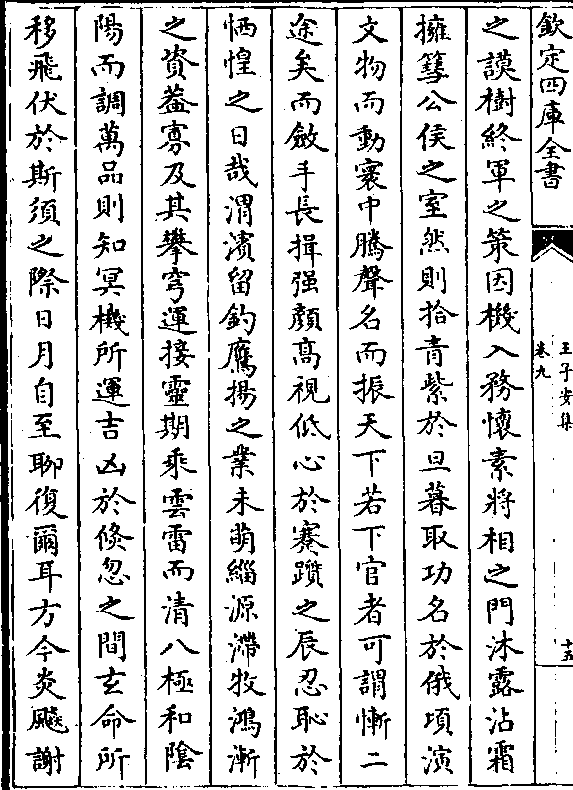 欽定四庫全書
王子安集
卷九
十五
之謨樹終軍之策因機入務懷素將相之門沐露沾霜
擁篲公侯之室然則拾青紫於旦暮取功名於俄頃演
文物而動寰中騰聲名而振天下若下官者可謂慚二
途矣而斂手長揖强顔高視低心於蹇躓之辰忍恥於
恓惶之日哉渭濱留釣鷹揚之業未萌緇源滯牧鴻漸
之資葢寡及其攀穹運接靈期乘雲雷而清八極和陰
陽而調萬品則知冥機所運吉凶於倐忽之間玄命所
移飛伏於斯須之際日月自至聊復爾耳方今炎飈謝